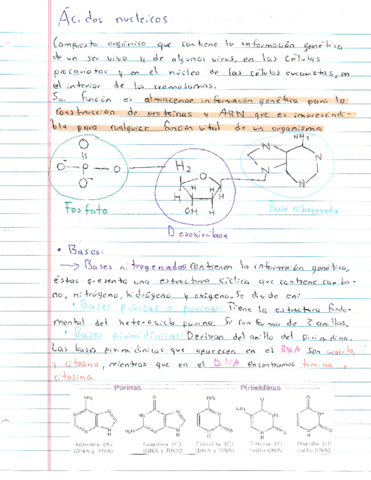 Ácidos nucleicos
Compuesto orgánico que contiene la información genética
de un ser vivo y de algunos virus, en las células
procariotas y en el núcleo de las células eucariotas, en
el interior de los cromosomas.
Su función es almacenar información genética para la
construcción de proteínas y ARN que es imprescindi-
ble para cualquier función vital de un organismo
NH2
O
O⁻ P O
O⁻
H2
C
O
N N
N N
H H
H H
OH H
Fosfato
Desoxirribosa
Base nitrogenada
• Bases:
→ Bases nitrogenadas contienen la información genética,
éstas presenta una estructura cíclica que contiene carbo-
no, nitrógeno, hidrógeno y oxígeno. Se divide en:
• Bases púricas o purinas: Tiene la estructura funda-
mental del heterociclo purina. Se conforma de 2 anillos.
• Bases pirimidínicas: Derivan del anillo del pirimidina.
Las bases pirimidínicas que aparecen en el RNA son uracilo
y citosina, mientras que en el DNA encontramos timina y
citosina.
Purinas Pirimidinas
Adenina (A) Guanina (G) Citosina (C) Timina (T) Uracilo (U)
(DNA y RNA) (DNA y RNA) (DNA y RNA) (sólo DNA) (sólo RNA)